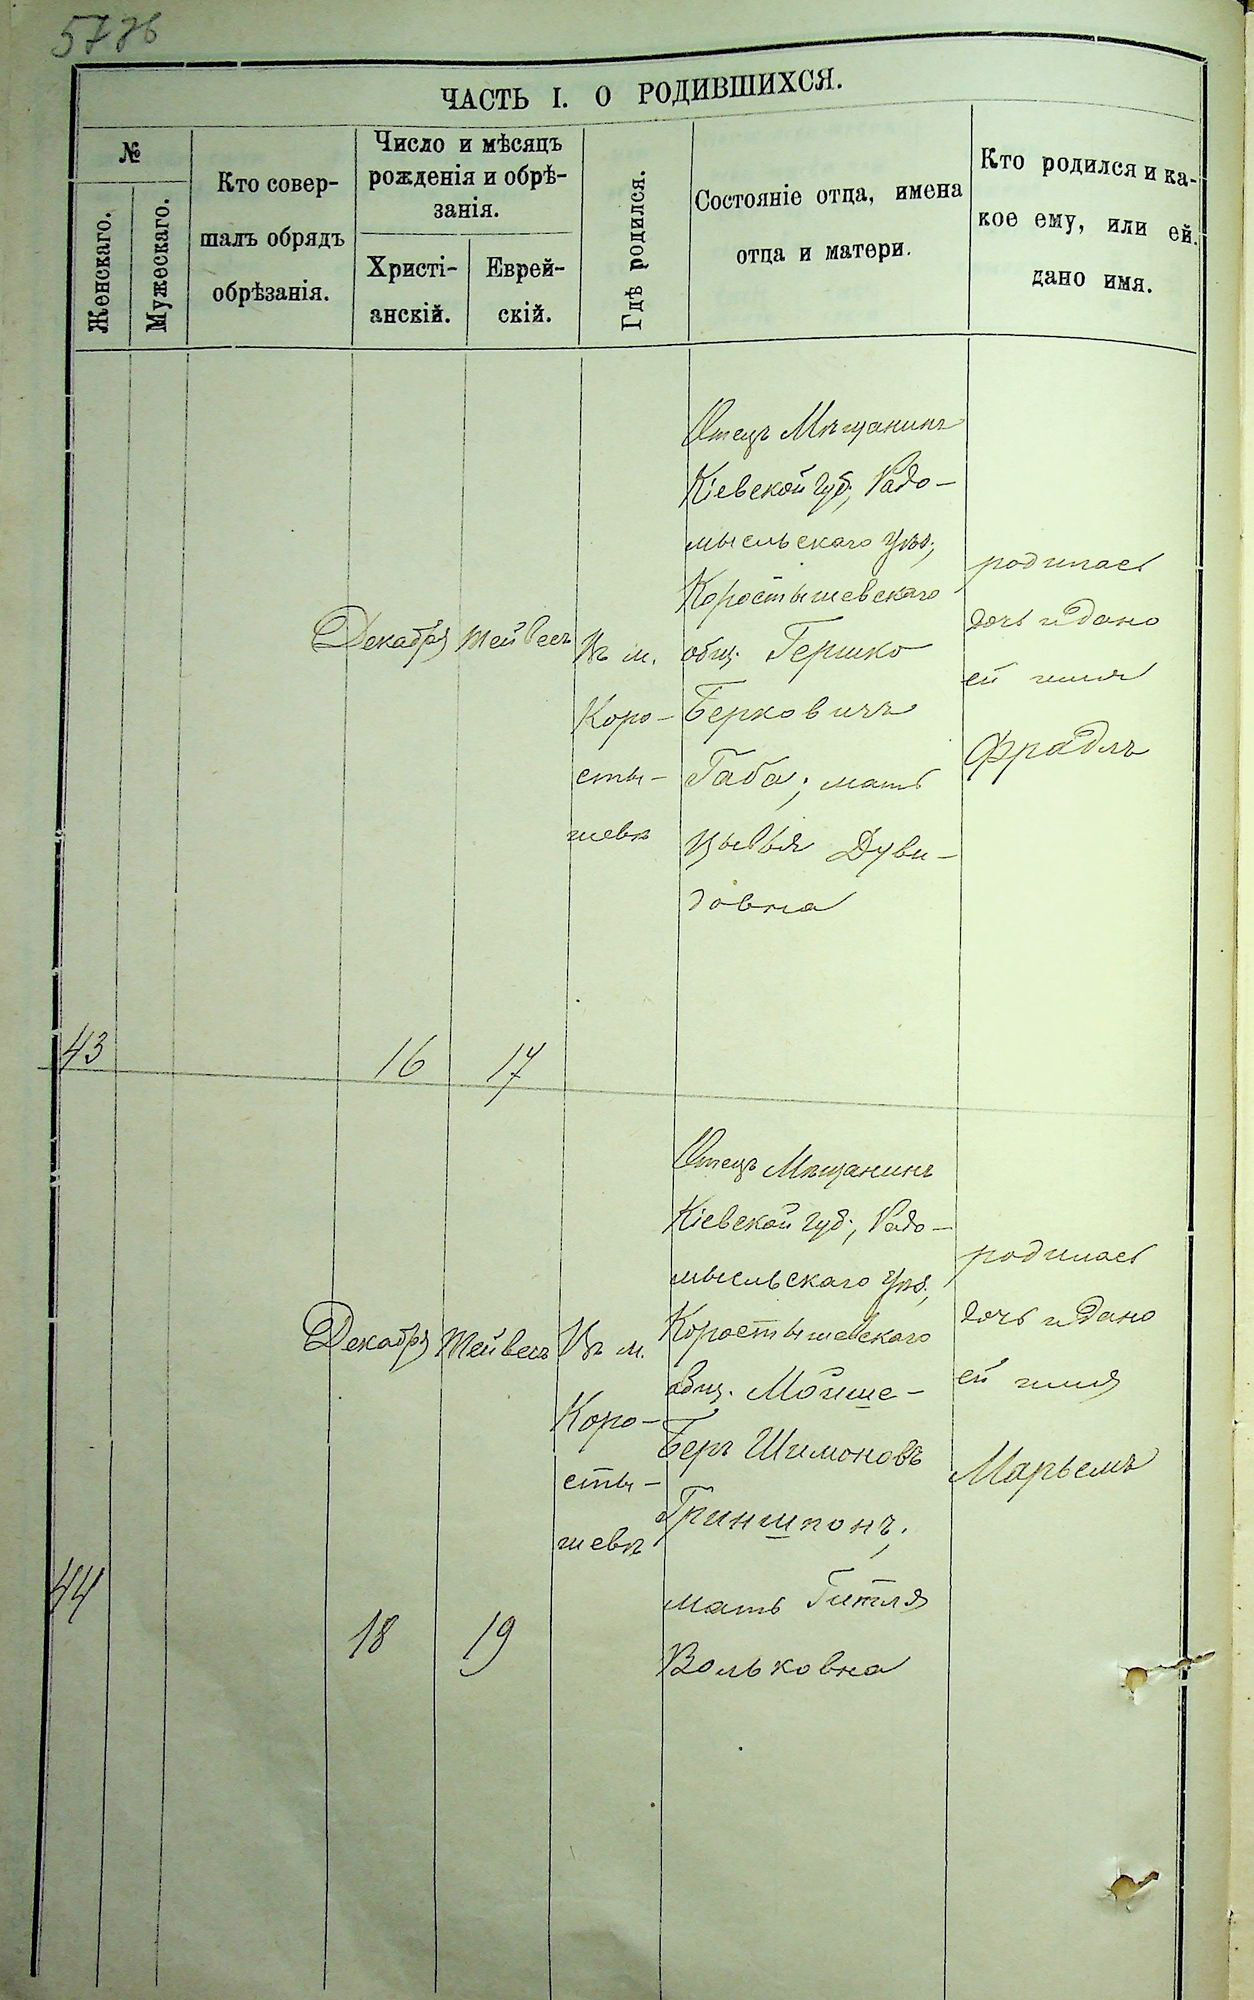 ЧАСТЬ I. О РОДИВШИХСЯ.
№
Женскаго.
Мужескаго.
Кто совер-
шалъ обрядъ
обрѣзанія.
Число и мѣсяцъ
рожденія и обрѣ-
занія.
Христі-
анскій.
Еврей-
скій.
Гдѣ родился.
Состояніе отца, имена
отца и матери.
Кто родился и ка-
кое ему, или ей.
дано имя.
43
Декабря
16
Тейвесъ
17
Въ м.
Коро-
сты-
шевѣ
Отецъ Мѣщанинъ
Кіевской губ., Радо-
мысльскаго уѣз.,
Коростышевскаго
общ. Гершко
Берковичъ
Габа; мать
Цывья Дуви-
довна
родилась
дочь и дано
ей имя
Фрадль
44
Декабря
18
Тейвесъ
19
Въ м.
Коро-
сты-
шевѣ
Отецъ Мѣщанинъ
Кіевской губ., Радо-
мысльскаго уѣз.,
Коростышевскаго
общ. Мойше-
Беръ Шимоновъ
Гриншпонъ,
мать Гитля
Вольковна
родилась
дочь и дано
ей имя
Марьемъ